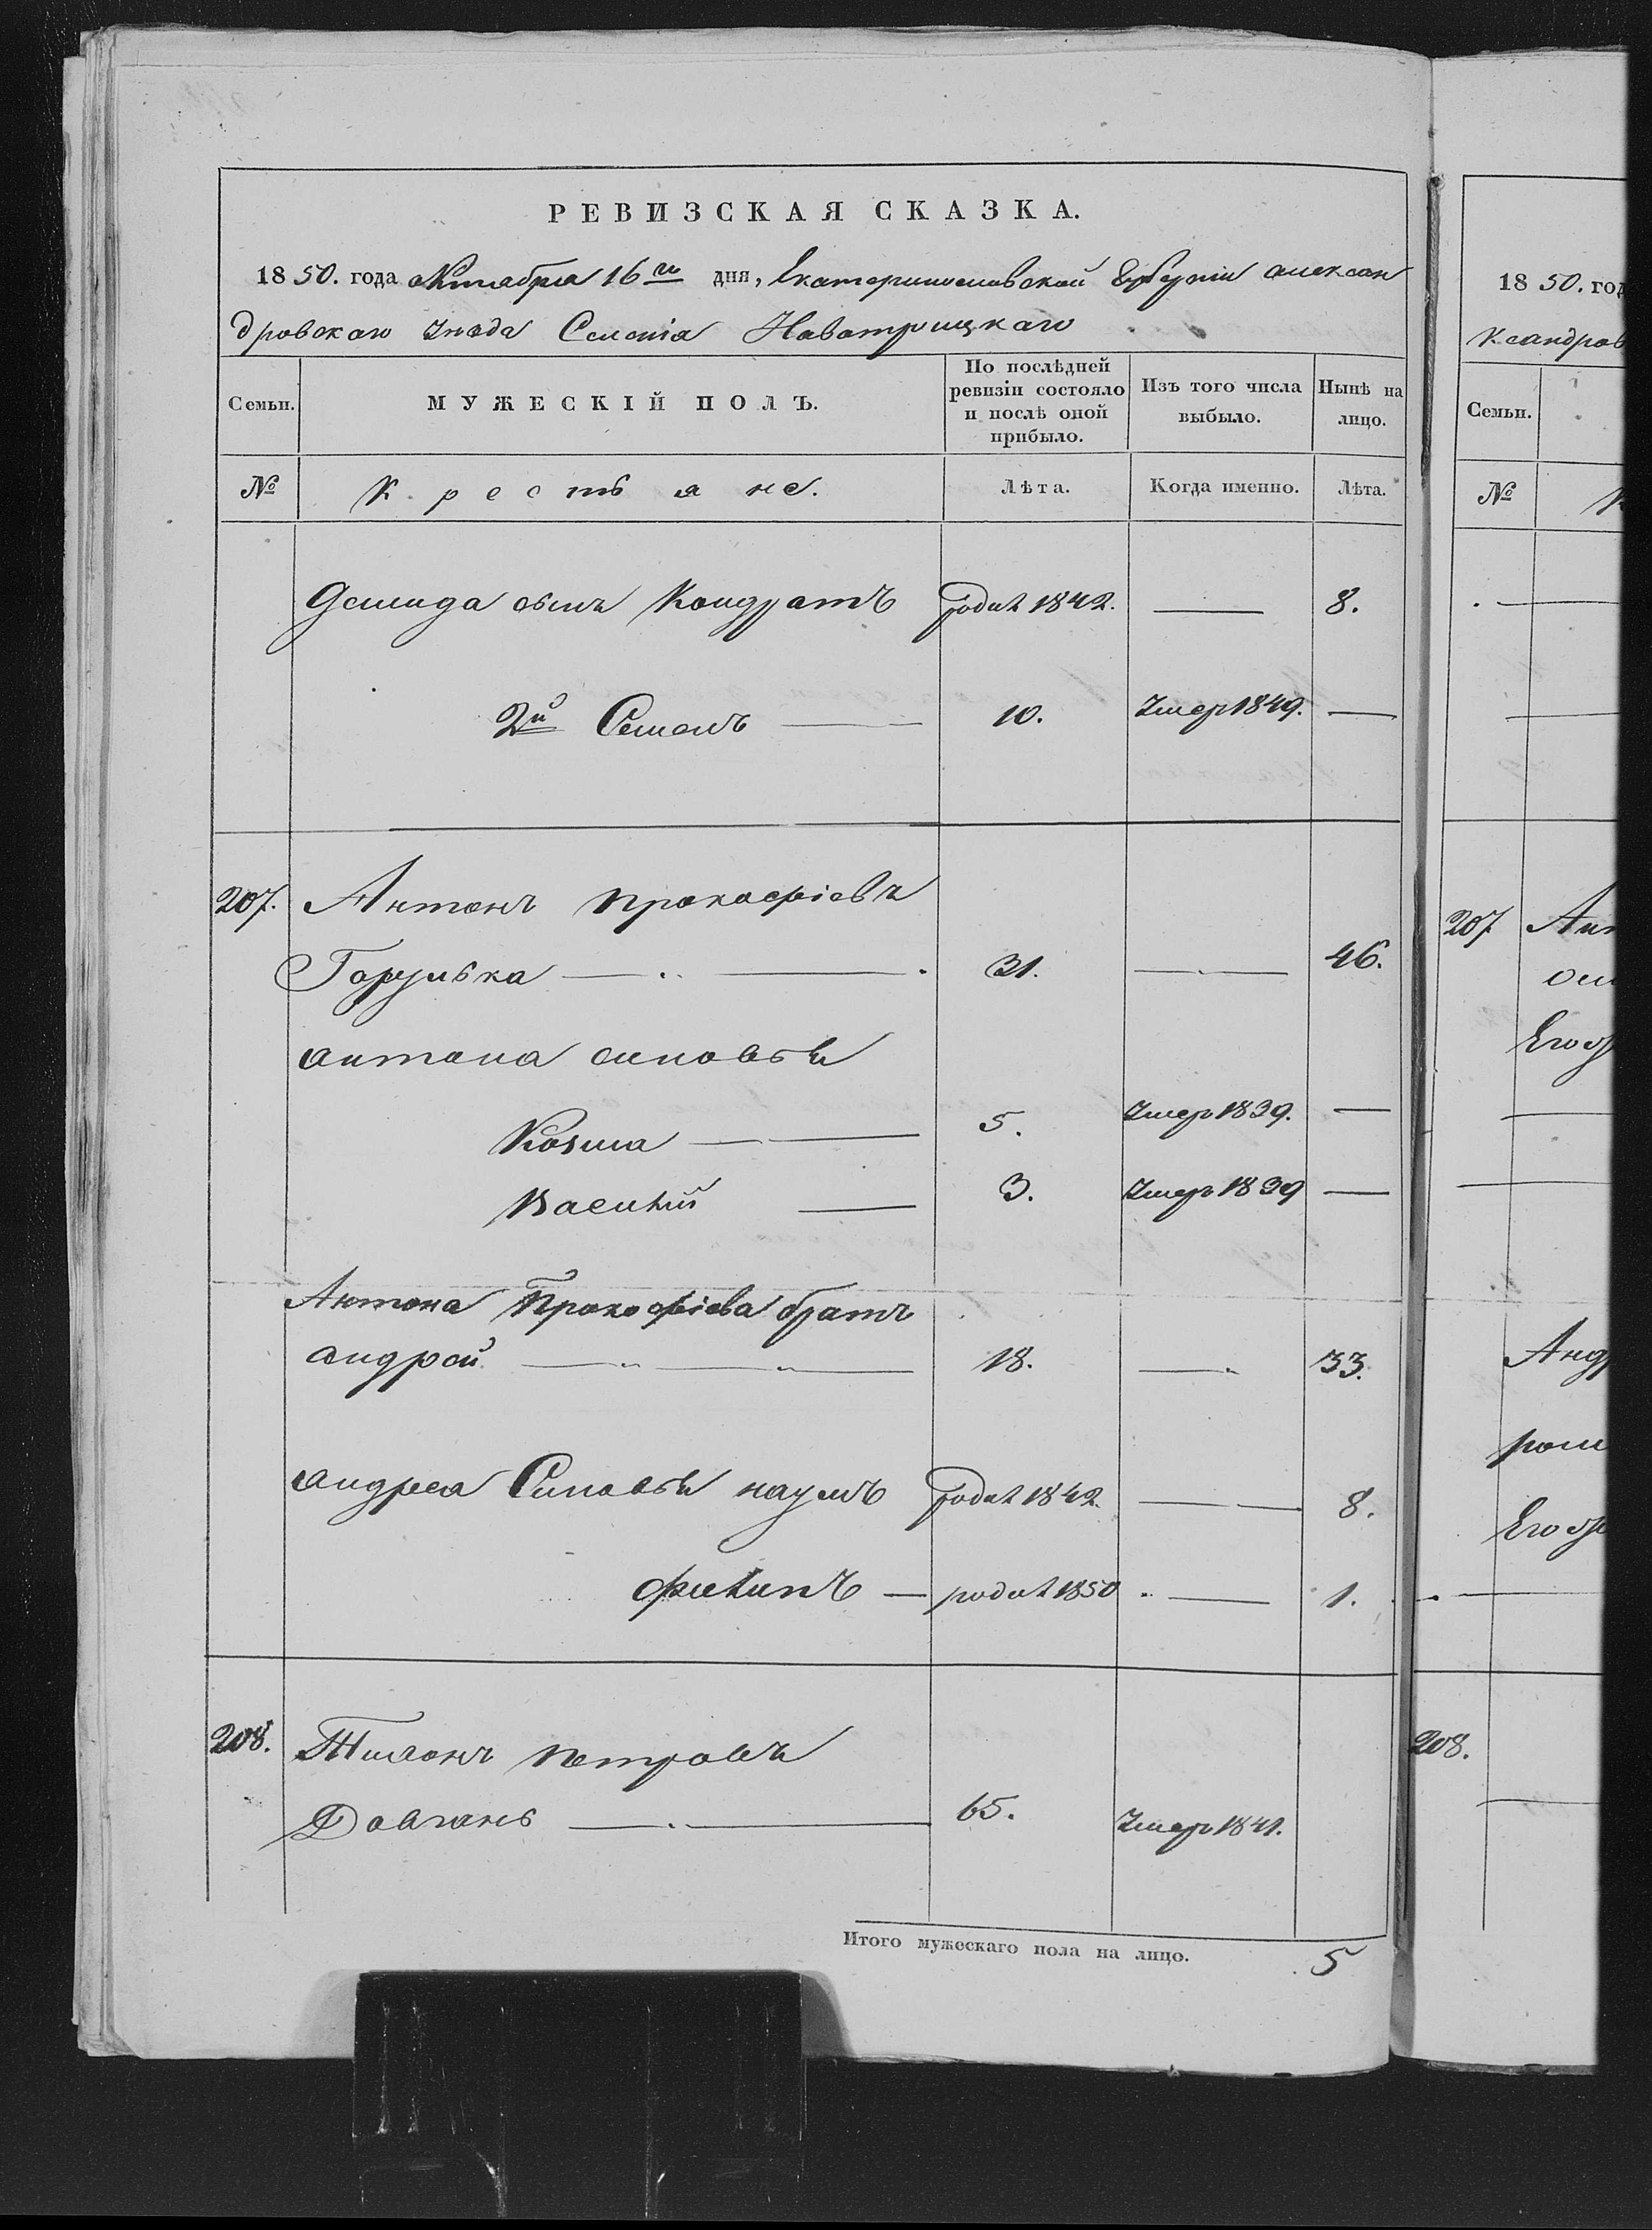 РЕВИЗСКАЯ СКАЗКА.
1850. года октября 16го дня, Екатеринославской Губернии Алексан
дровскаго уезда Селения Новотроицкаго
Семьи.
МУЖЕСКІЙ ПОЛЪ.
По послѣдней ревизіи состояло и послѣ оной прибыло.
Изъ того числа выбыло.
Нынѣ на лицо.
№
Крестьяне.
Лѣта.
Когда именно.
Лѣта.
Демида сынъ Кондратъ родил 1842. — 8.
2й Семенъ — 10. Умер 1849. —
207. Антонъ Прокофіевъ
Горулька — 31. — 46.
Антона синовья
Козма — 5. Умер 1839. —
Василий — 3. Умер 1839 —
Антона Прокофіева братъ
Андрей — 18. — 33.
Андрея Синовья Наумъ родил 1842. — 8.
Филипъ — родил 1850 — 1.
208. Тихонъ Петровъ
Довгань — 65. Умер 1841.
Итого мужескаго пола на лицо. 5
1850. год
ксандров
Семьи.
№
К
207 Ант
Его
Анд
Его
208.